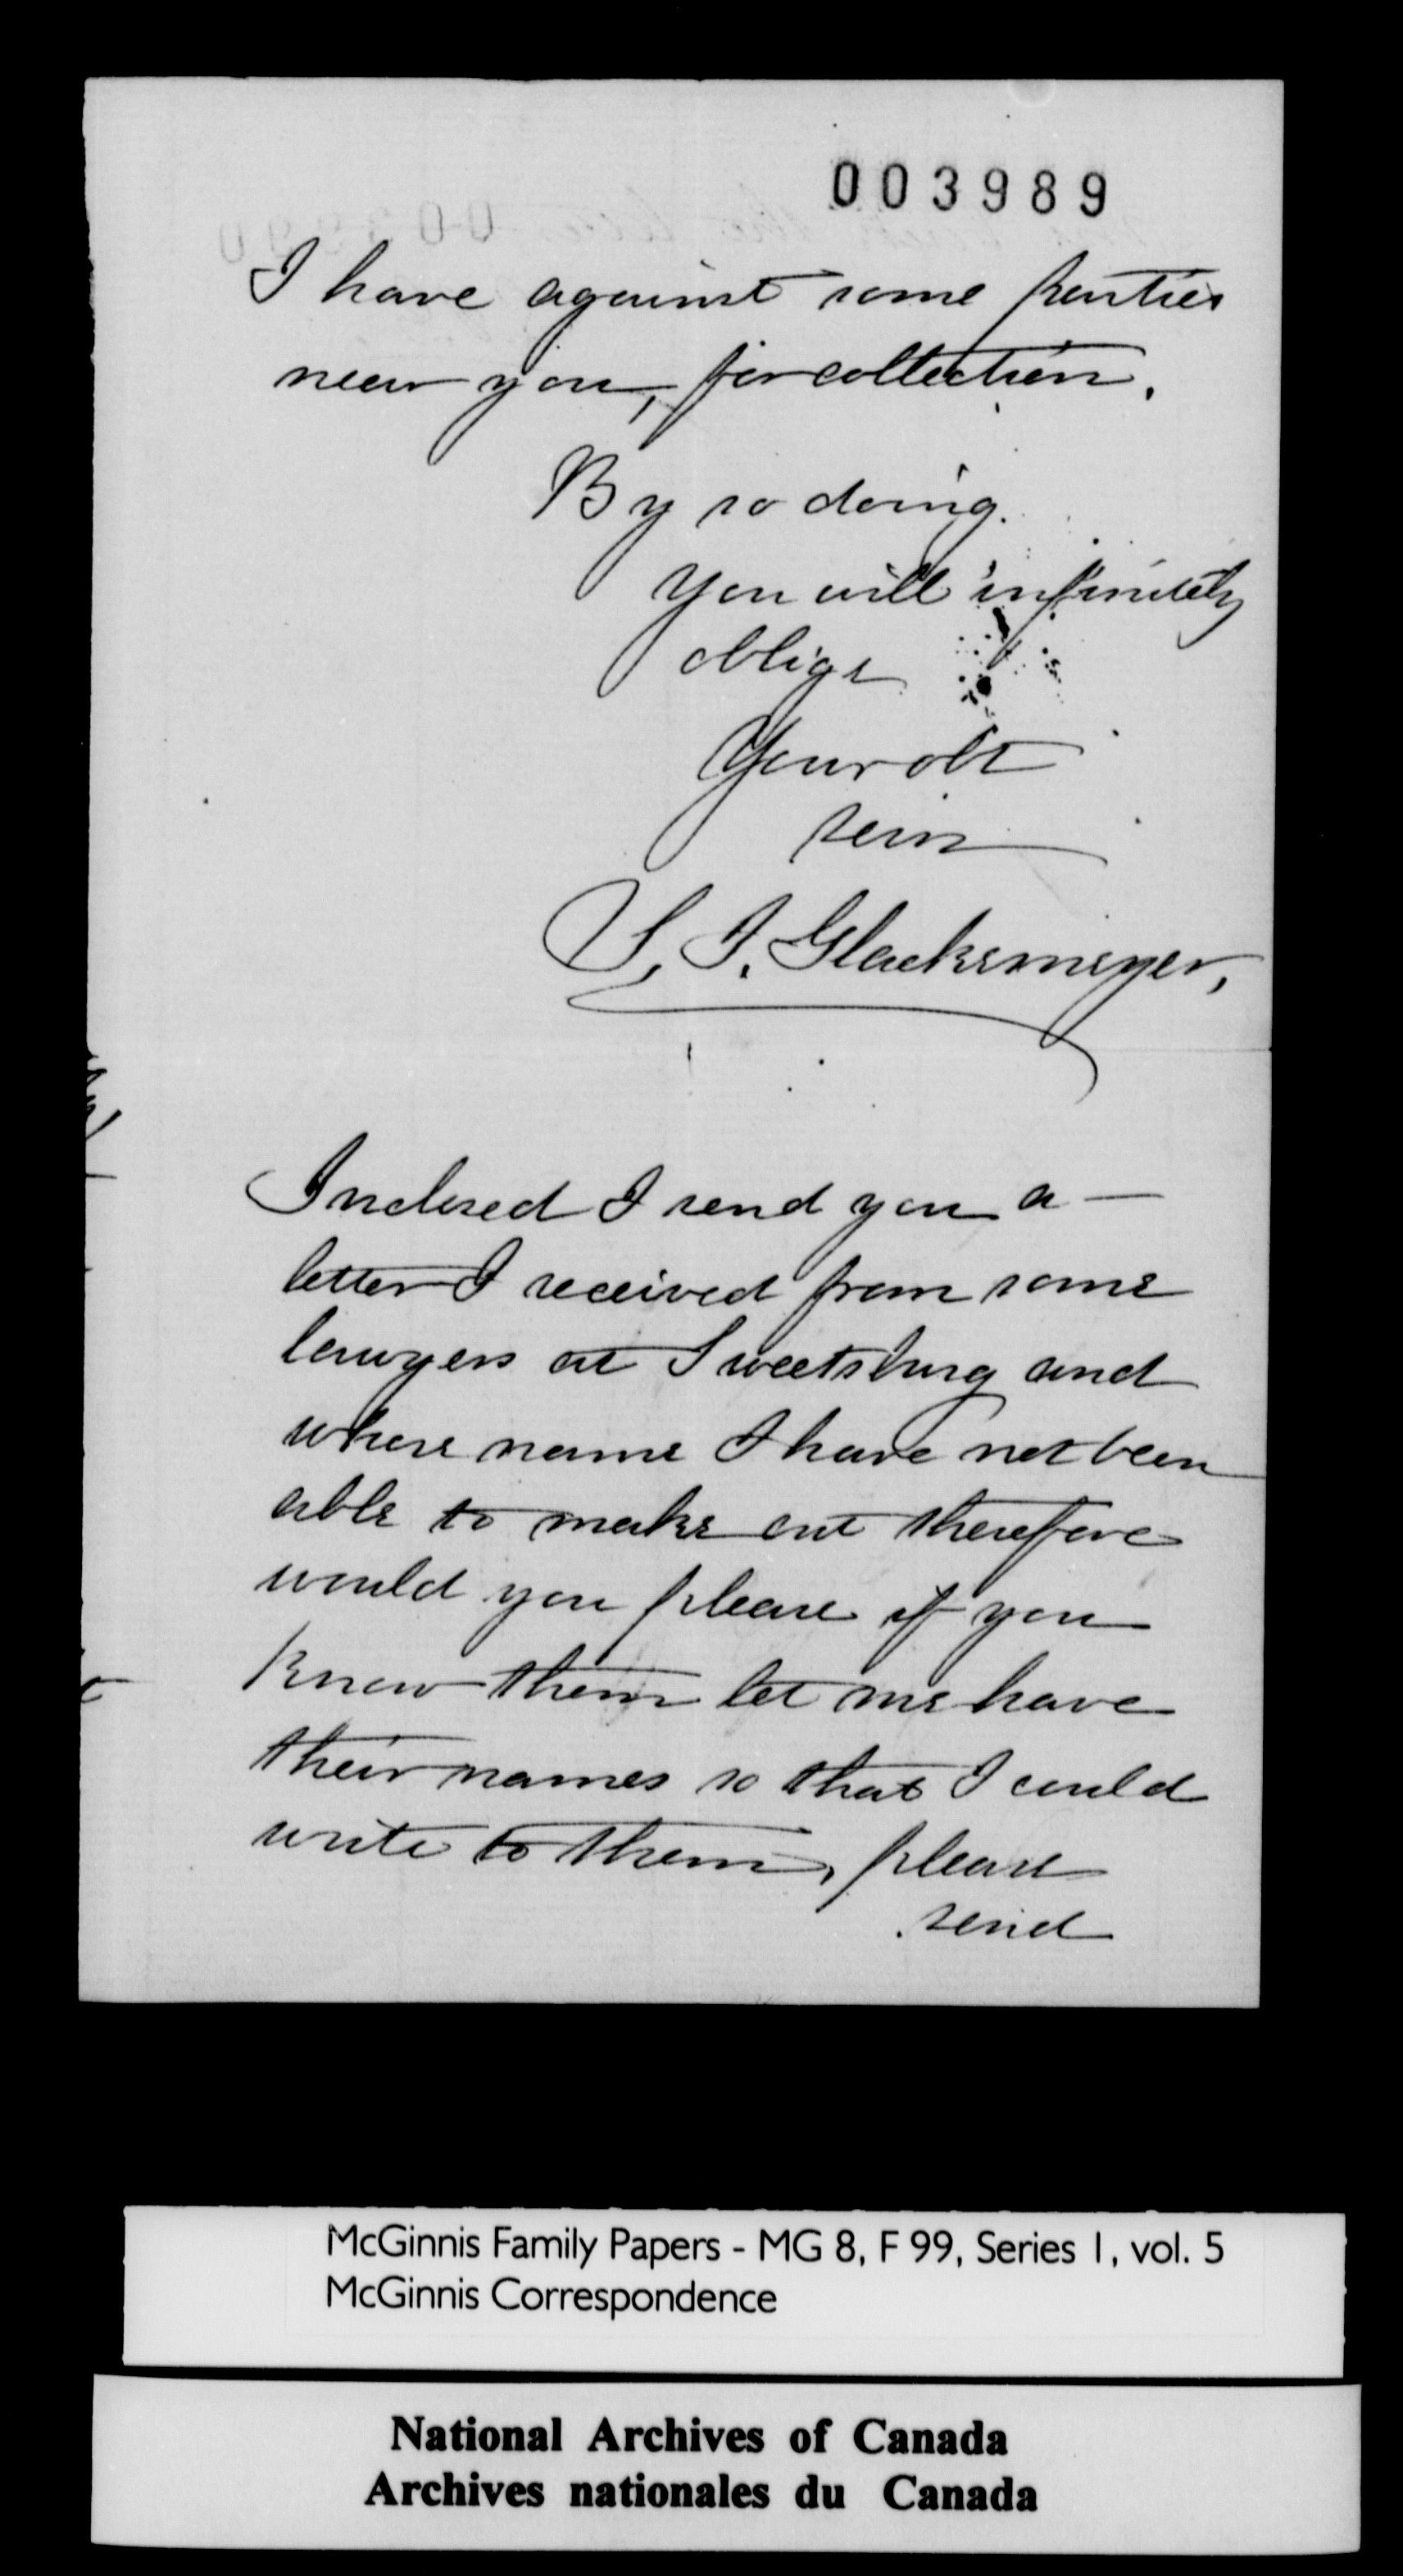 003989
I have against some parties
near you, for collection.
By so doing.
You will infinitely
oblige
Your obt
serv
S. I. Glackemeyer,
Inclosed I send you a —
letter I received from some
lawyers at Sweetsburg and
whose name I have not been
able to make out therefore
would you please if you
know them let me have
their names so that I could
write to them, please
send
McGinnis Family Papers - MG 8, F 99, Series 1, vol. 5
McGinnis Correspondence
National Archives of Canada
Archives nationales du Canada